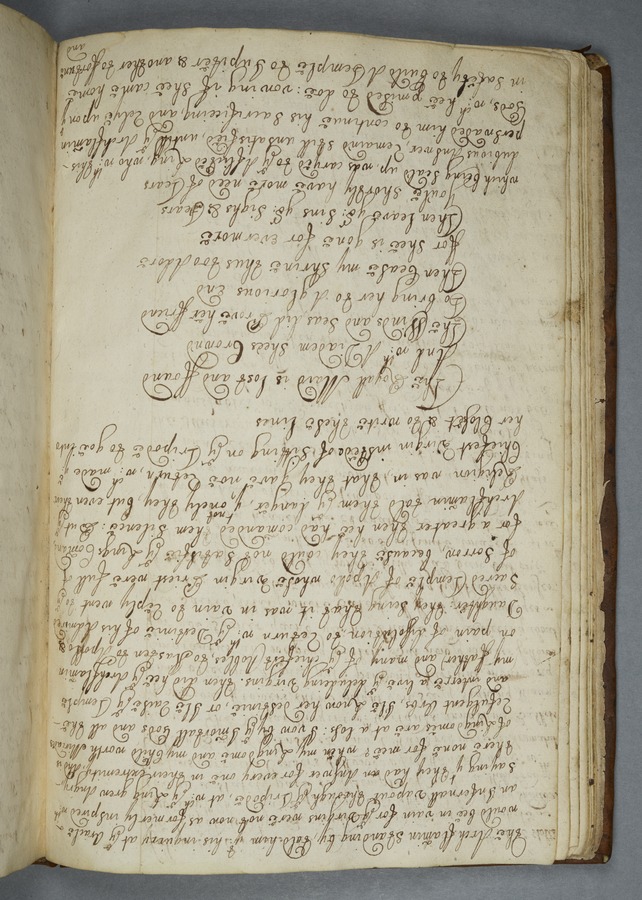 The Archflamin standing by, told him yt his inquirery at ye Oracle
would bee in vain for ye Virgins were not now as formerly inspired wth
an Infernall Vapour through ye Tripode: at wch ye King grew Angry
saying they had an Answer for every one in their extremity and is
there none for mee? when my Kingdome and my Child worth Miriads
of Kingdoms are at a loss: I vow by ye Imortall Gods and all the
Refulgent Orbs, Ile know her destinie or Ile raise ye Temple
and interr a live ye deluding Virgins. then did hee ye Archflamin
my Father and many of ye chiefest Nobles to hasten to Apollo &
on pain of disolation to return wth ye destinie of his Adored
Daughter; they seing that it was in vain to reply went to ye
Sacred Temple of Apolo whose Virgin Priest were full
of Sorrow because they could not Satisfie ye Kings Comand
for a greater then hee had comanded them Silence: But ye
Archflamin told them ye danger, not onely they but even their
Religion was in, that they gave noe return, wch made ye
Chiefest Virgin insteed of Sitting on ye Tripode to goe into
her Closset & to write these lines
The Royall Maid is lost and ffound
And wth A Diadem Shees Crownd
The Winds and Seas did Prove her ffriend
To bring her to A glorious end
Then Cease my Shrine thus too Adore
ffor Shee is gone for evermore
Then leave yor Sins yor Sighs & Tears
Youle shortly have more nee of Tears
which being Seald up, was caried to ye Afflicted King, who wth this
dubious Ansner, Remaind still unsatisfied, untill ye Archflamin
perswaded him to continue his Sacrifiecing and Relye upon ye
Gods, wch hee pmised to doe: vowing if Shee came home
in Safety to built A Temple to Jupiter & another to fortune
and